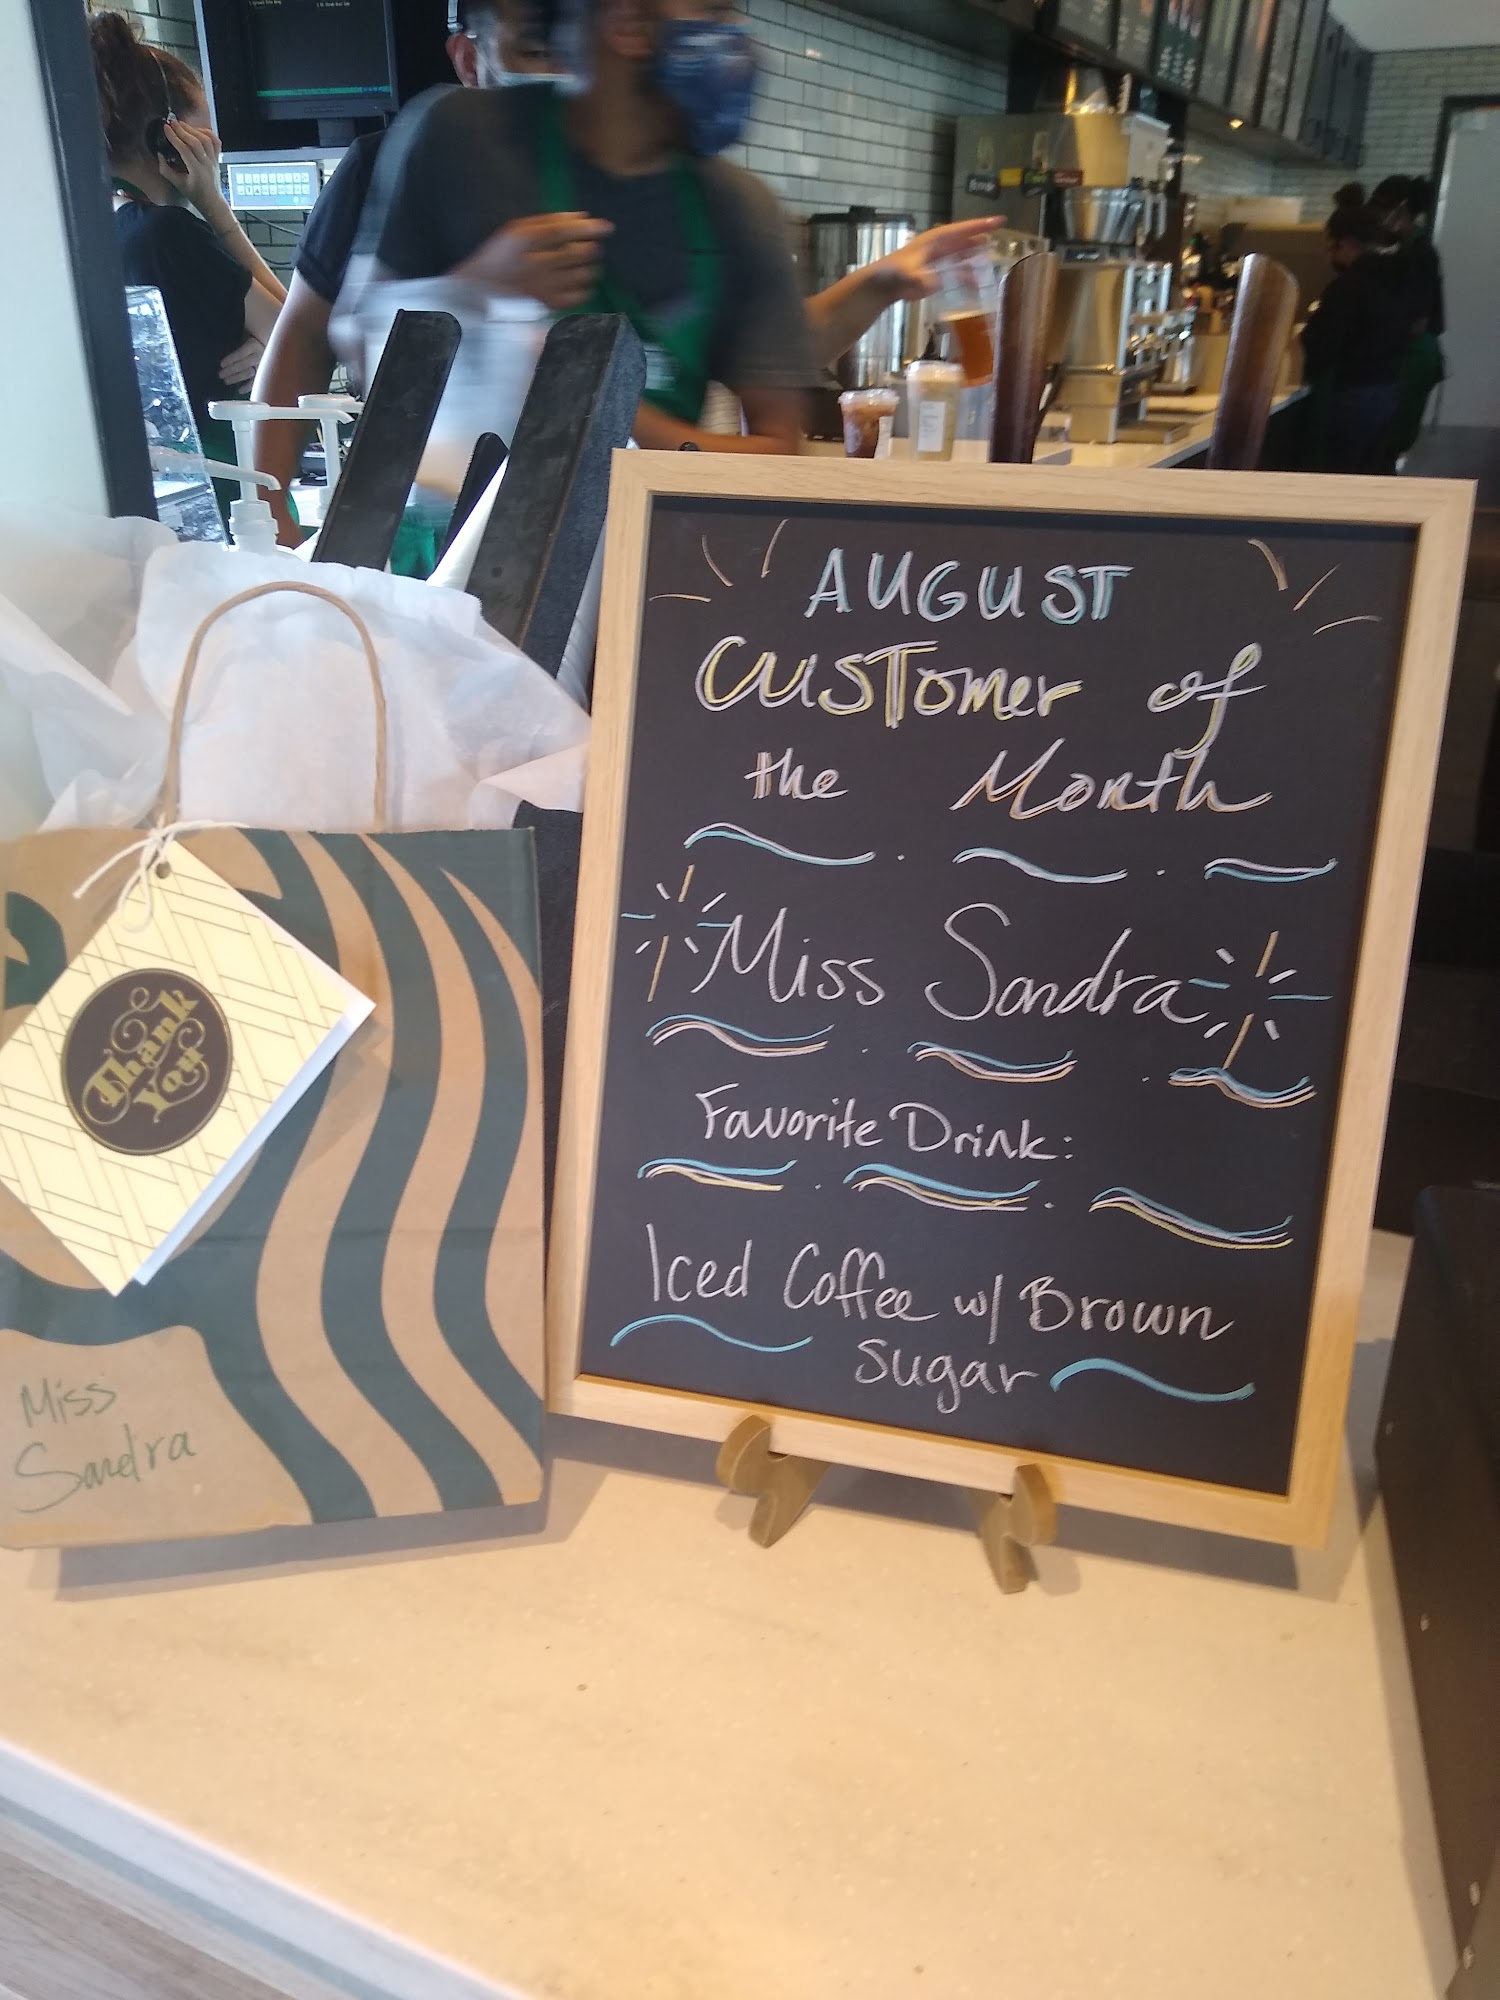 AUGUST
Customer of
the Month
Miss Sandra
Favorite Drink:
Iced Coffee w/ Brown
sugar
Thank
You
Miss
Sandra